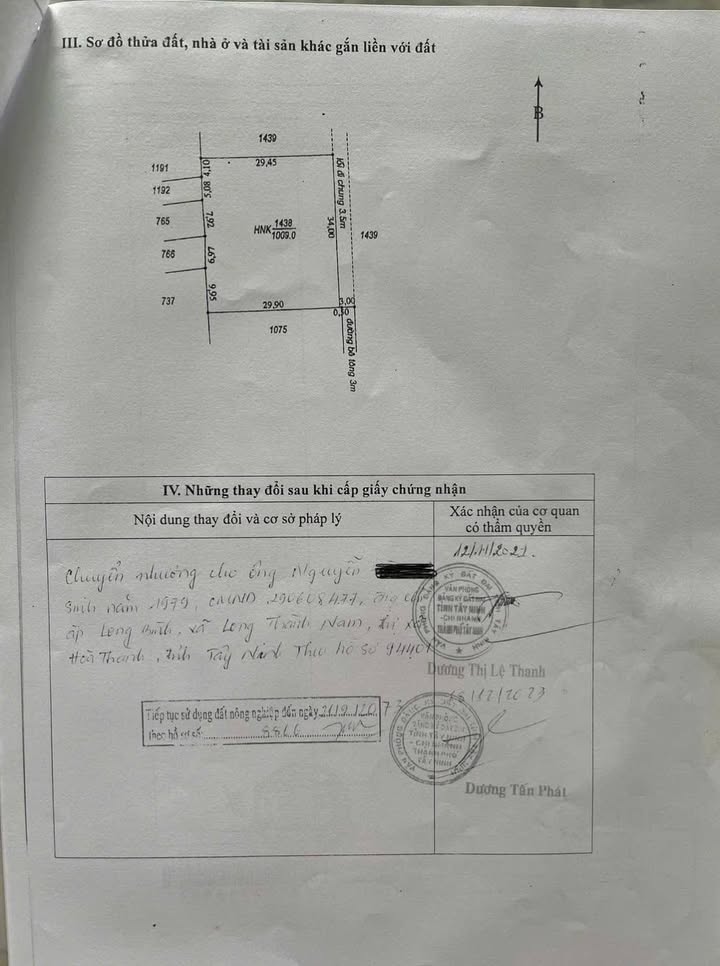 III. Sơ đồ thửa đất, nhà ở và tài sản khác gắn liền với đất
B
1439
29,45
1191
4,10
1192
5,08
765
7,92
766
6,97
737
9,95
HNK 1438
1009.0
34,00
lối đi chung 3.5m
1439
29.90
3,00
0,50
1075
đường bê tông 3m
IV. Những thay đổi sau khi cấp giấy chứng nhận
Nội dung thay đổi và cơ sở pháp lý
Xác nhận của cơ quan
có thẩm quyền
Chuyển nhượng cho ông Nguyễn
Sinh năm 1979, CMND 290608477,
ấp Long Bình, xã Long Thành Nam, thị xã
Hoà Thành, tỉnh Tây Ninh Theo hồ sơ 94401
VĂN PHÒNG
ĐĂNG KÝ ĐẤT ĐAI
TỈNH TÂY NINH
- CHI NHÁNH
THÀNH PHỐ TÂY NINH
Dương Thị Lệ Thanh
Tiếp tục sử dụng đất nông nghiệp đến ngày
theo hồ sơ số: 8866
/12/2023
VĂN PHÒNG
TỈNH TÂY NINH
- CHI NHÁNH
THÀNH PHỐ
TÂY NINH
Dương Tấn Phát